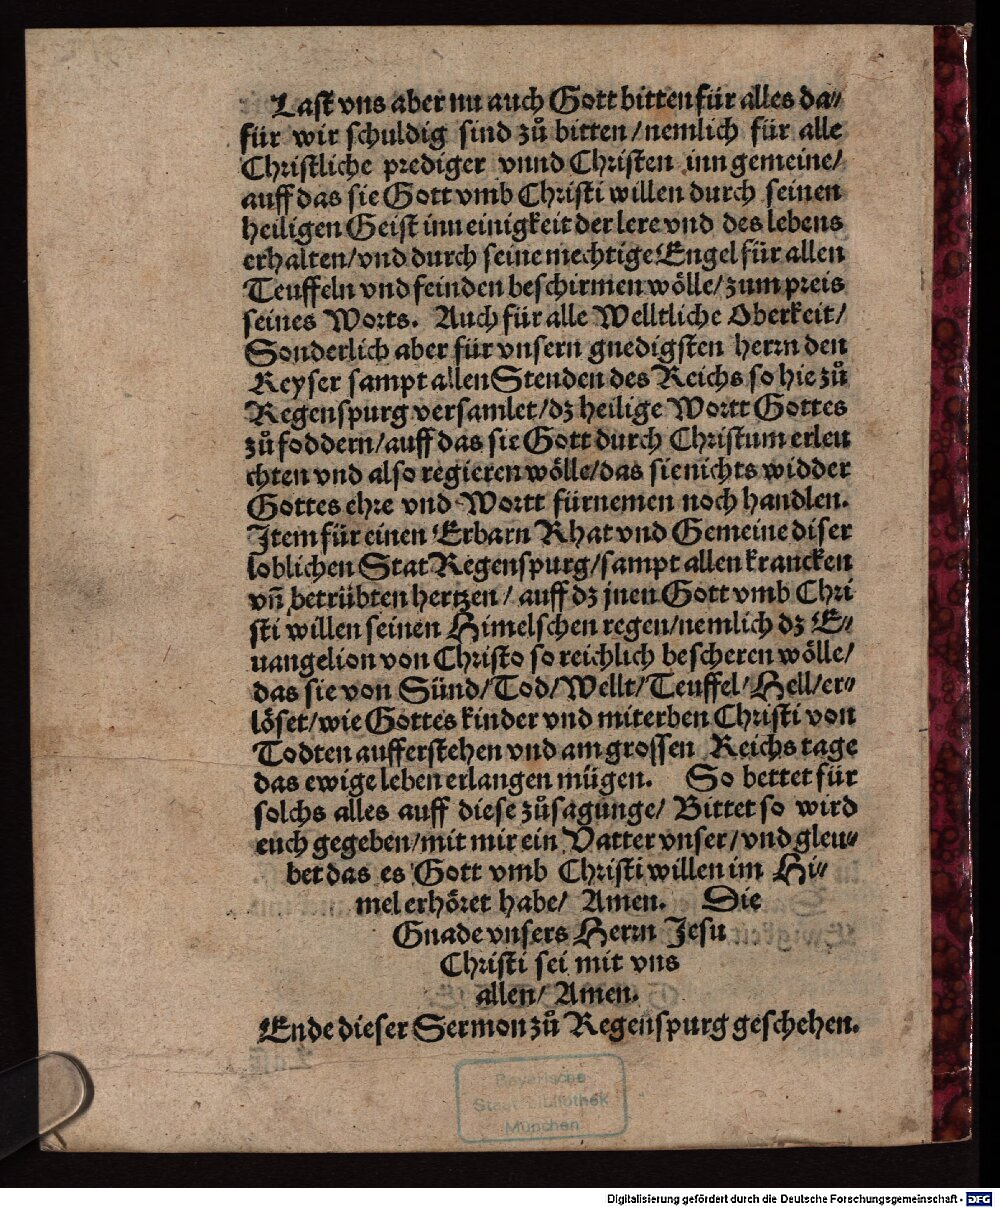 Last vns aber nu auch Gott bitten für alles da⸗
für wir schuldig sind zů bitten/nemlich für alle
Christliche prediger vnnd Christen inn gemeine/
auff das sie Gott vmb Christi willen durch seinen
heiligen Geist inn einigkeit der lere vnd des lebens
erhalten/vnd durch seine mechtige Engel für allen
Teuffeln vnd feinden beschirmen wölle/zum preis
seines Worts. Auch für alle Welltliche Oberkeit/
Sonderlich aber für vnsern gnedigsten herrn den
Keyser sampt allen Stenden des Reichs so hie zů
Regenspurg versamlet/dz heilige Wortt Gottes
zů foddern/auff das sie Gott durch Christum erleu
chten vnd also regieren wölle/das sie nichts widder
Gottes ehre vnd Wortt fürnemen noch handlen.
Item für einen Erbarn Rhat vnd Gemeine diser
loblichen Stat Regenspurg/sampt allen krancken
vñ betrübten hertzen/ auff dz jnen Gott vmb Chri
sti willen seinen Himelschen regen/nemlich dz E⸗
uangelion von Christo so reichlich bescheren wölle/
das sie von Sünd/Tod/Wellt/Teuffel/Hell/er⸗
löset/wie Gottes kinder vnd miterben Christi von
Todten aufferstehen vnd am grossen Reichs tage
das ewige leben erlangen mügen. So bettet für
solchs alles auff diese zůsagunge/ Bittet so wird
euch gegeben/mit mir ein Vatter vnser/vnd gleu⸗
bet das es Gott vmb Christi willen im Hi⸗
mel erhöret habe/ Amen. Die
Gnade vnsers Herrn Jesu
Christi sei mit vns
allen/ Amen.
Ende dieser Sermon zů Regenspurg geschehen.
Bayerische
Staatsbibliothek
München
Digitalisierung gefördert durch die Deutsche Forschungsgemeinschaft - DFG